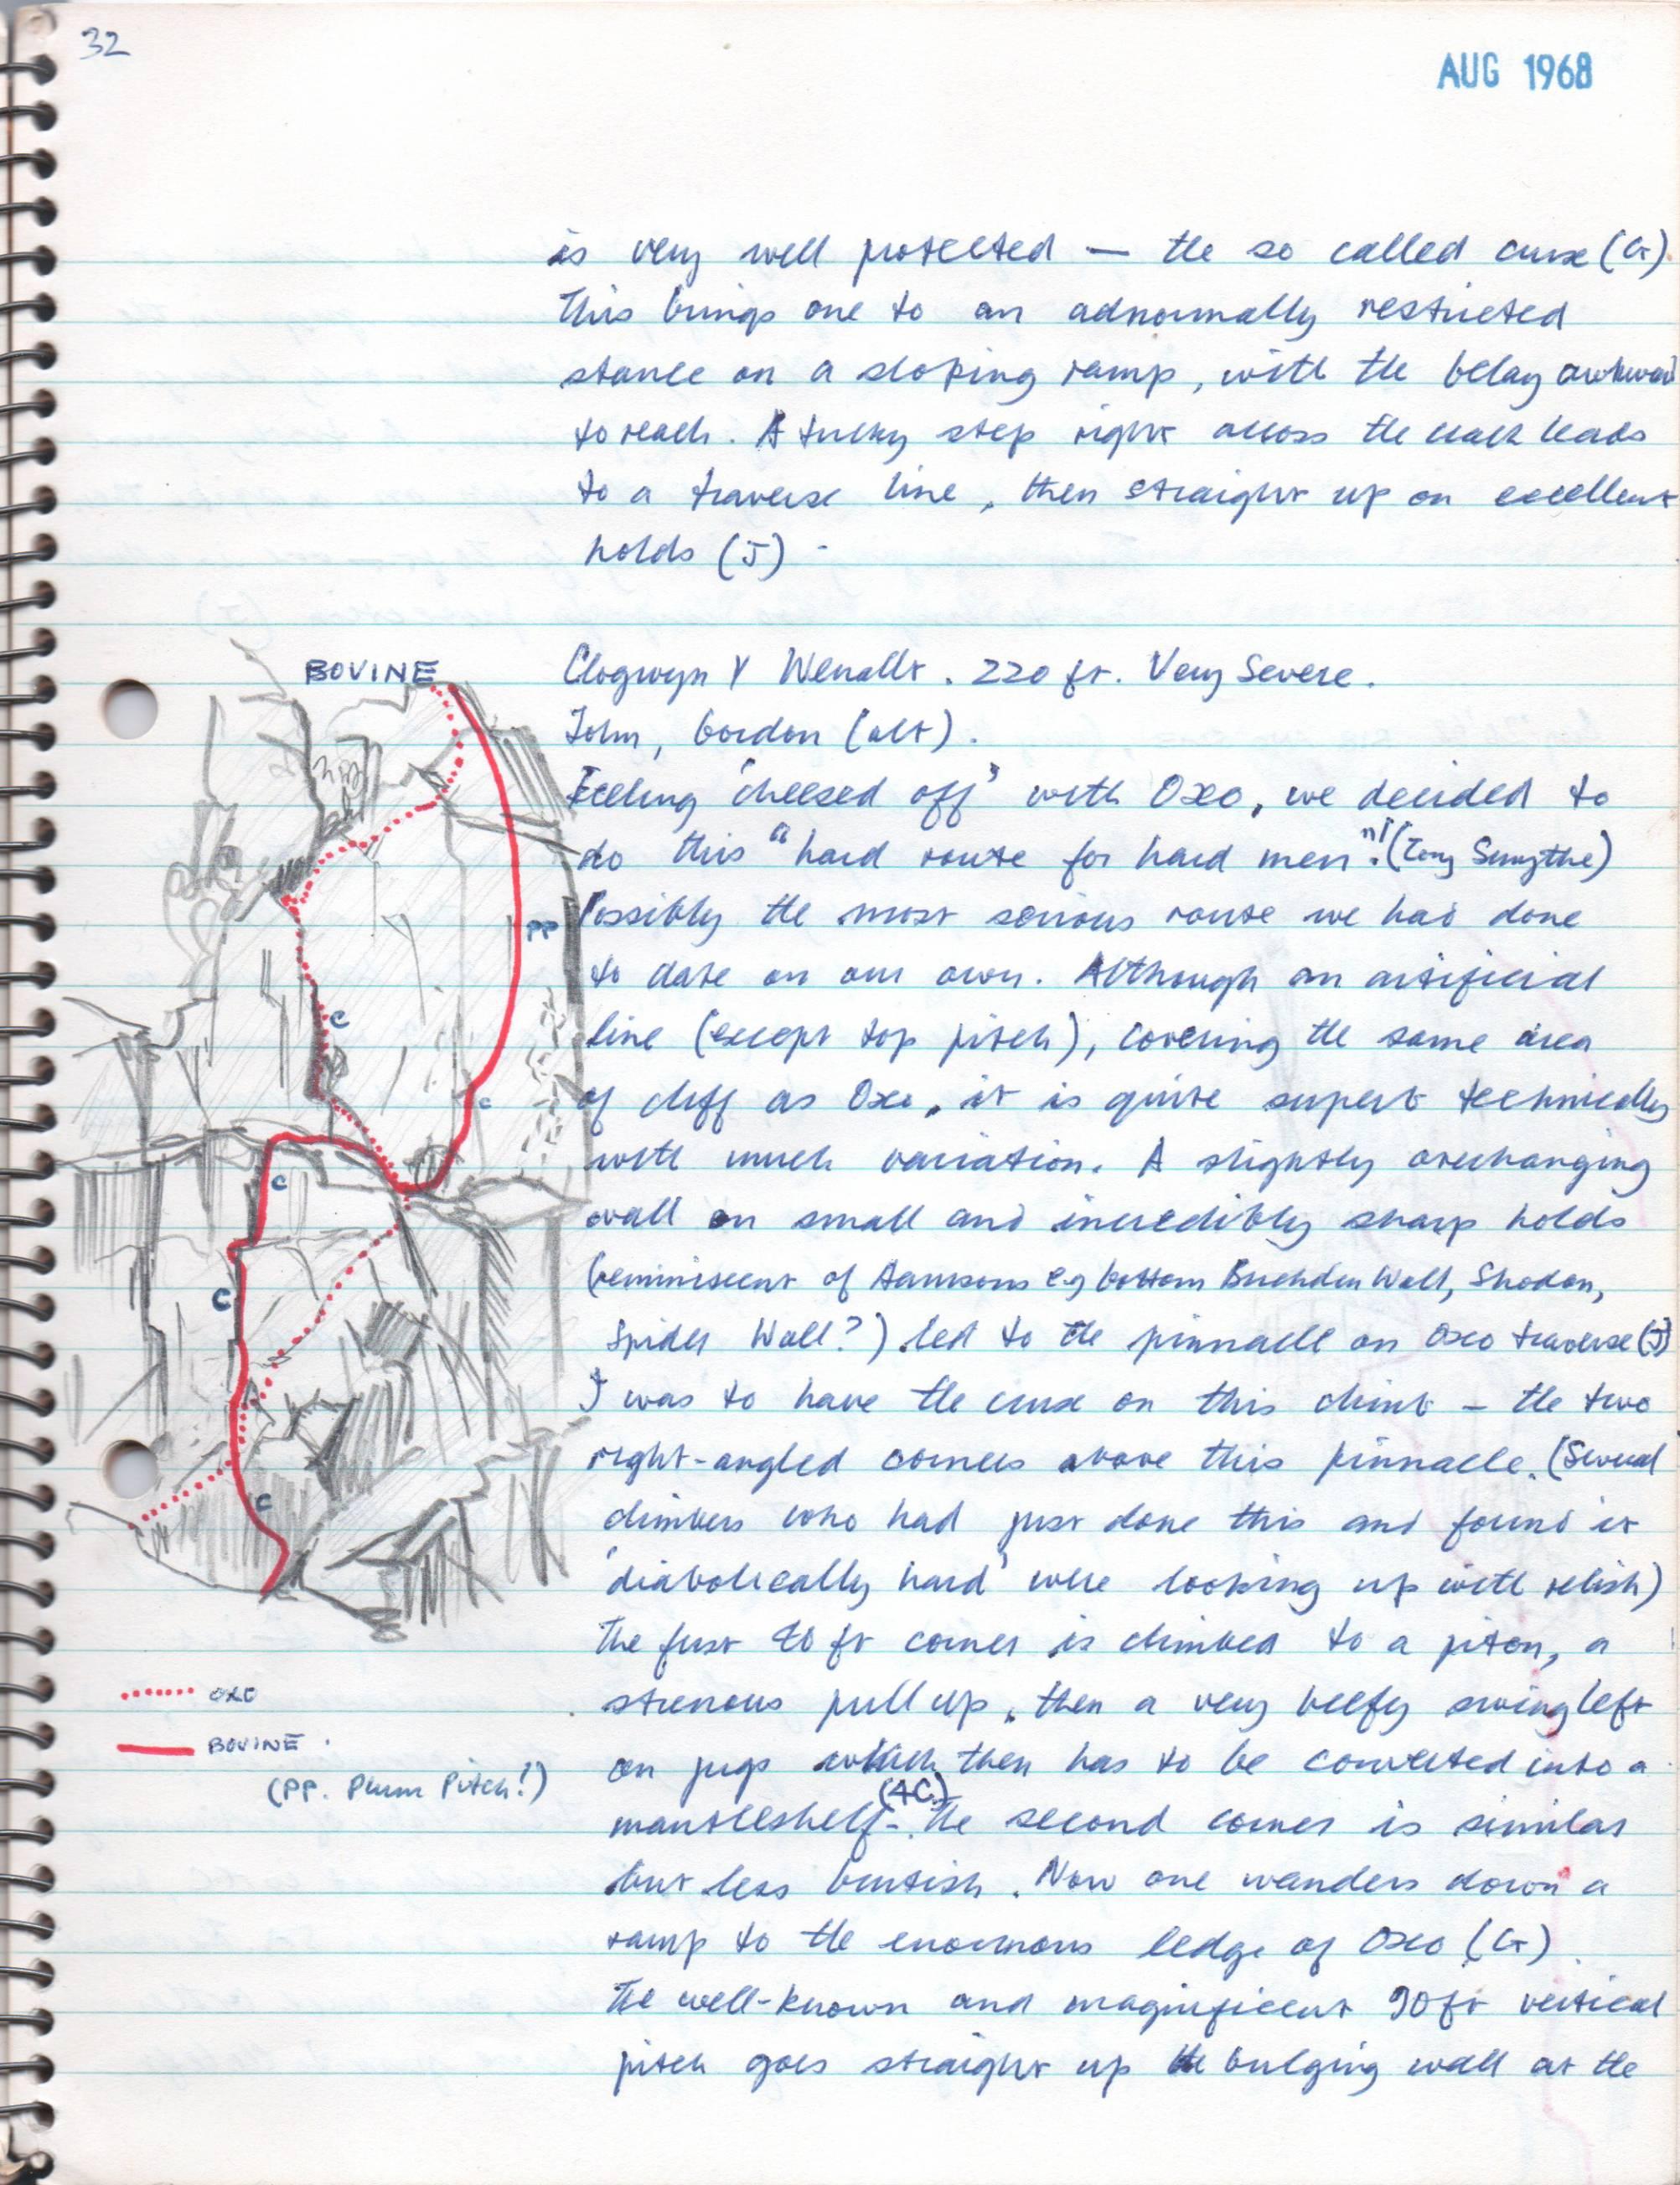 32
AUG 1968
is very well protected — the so called crux (G).
This brings one to an adnormally restricted
stance on a sloping ramp, with the belay awkward
to reach. A tricky step right across the crack leads
to a traverse line, then straight up on excellent
holds (J)
BOVINE
Clogwyn Y Wenallt. 220 ft. Very Severe.
John, Gordon (alt).
Feeling 'cheesed off' with Oxo, we decided to
do this "hard route for hard men"! (Tony Smythe)
Possibly the most serious route we had done
to date on our own. Although an artificial
line (except top pitch), covering the same area
of cliff as Oxo, it is quite superb technically
with much variation. A slightly overhanging
wall on small and incredibly sharp holds
(reminiscent of e.g bottom Wall, Shodan,
Spider Wall?) led to the pinnacle on Oxo traverse (J)
I was to have the crux on this climb - the two
right-angled corners above this pinnacle. (Several
climbers who had just done this and found it
'diabolically hard' were looking up with relish)
The first ft corner is climbed to a piton, a
strenous pull up, then a very beefy swing left
on jugs which then has to be converted into a
(4C)
mantleshelf-. The second corner is similar
but less brutish. Now one wanders down a
ramp to the enormous ledge of Oxo (G).
The well-known and maginficent 90ft vertical
pitch goes straight up the bulging wall at the
PP
C
C
C
C
C
OXO
BOVINE.
(PP. Plum Pitch!)